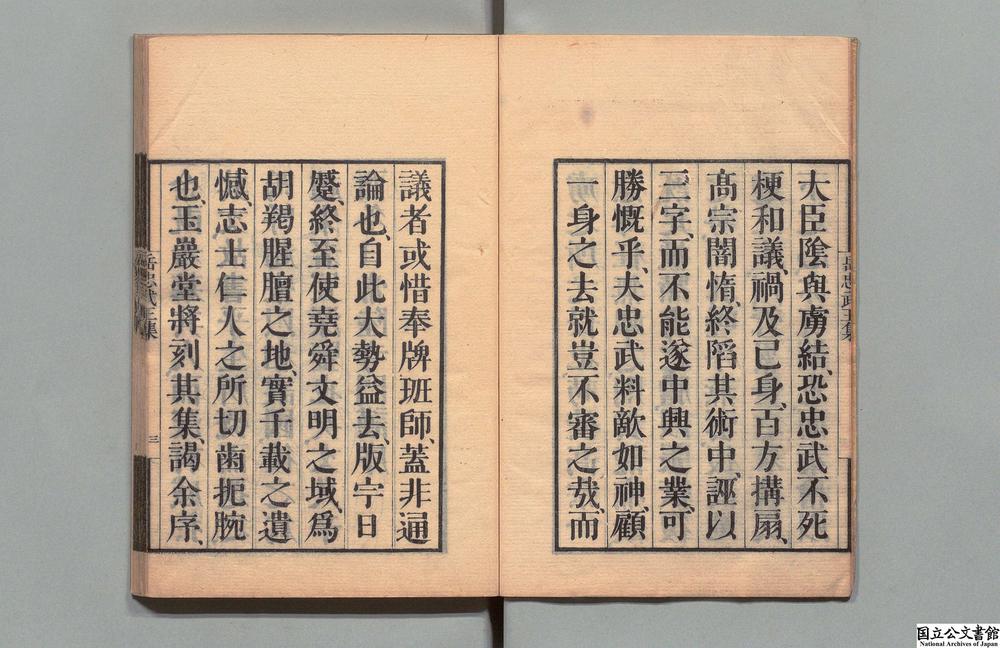 大臣陰與虜結、恐忠武不死
梗和議、禍及己身、百方搆扇、
髙宗闇惰、終䧟其術中、誣以
三字、而不能遂中興之業、可
勝慨乎、夫忠武料敵如神、顧
一身之去就豈不審之㢤、而
議者或惜奉牌班師、蓋非通
論也、自此大勢益去、版宇日
蹙、終至使堯舜文明之域、爲
胡羯腥膻之地、實千載之遺
憾、志士仁人之所切齒扼腕
也、玉巖堂將刻其集、謁余序、
岳忠武王集
岳忠武王集
三
国立公文書館
National Archives of Japan